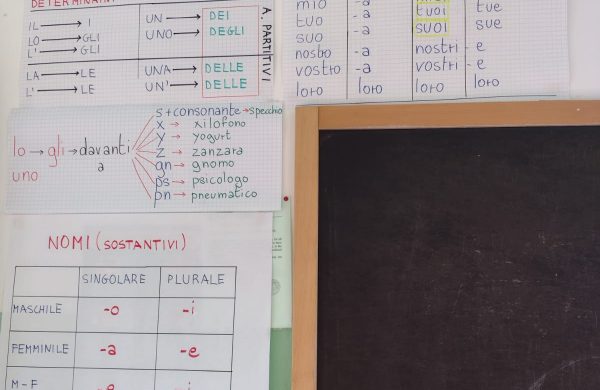 DETERMINATI
IL → I
LO → GLI
L' → GLI
LA → LE
L' → LE
UN → DEI
UNO → DEGLI
UNA → DELLE
UN' → DELLE
A. PARTITIVI
mio -a tue
tuo -a tuoi sue
suo -a suoi
nostro -a nostri - e
vostro -a vostri - e
loro loro loro loro
lo → gli → davanti a
uno
s + consonante → specchio
x → xilofono
y → yogurt
z → zanzara
gn → gnomo
ps → psicologo
pn → pneumatico
NOMI (SOSTANTIVI)
SINGOLARE PLURALE
MASCHILE -o -i
FEMMINILE -a -e
M-F -e -i